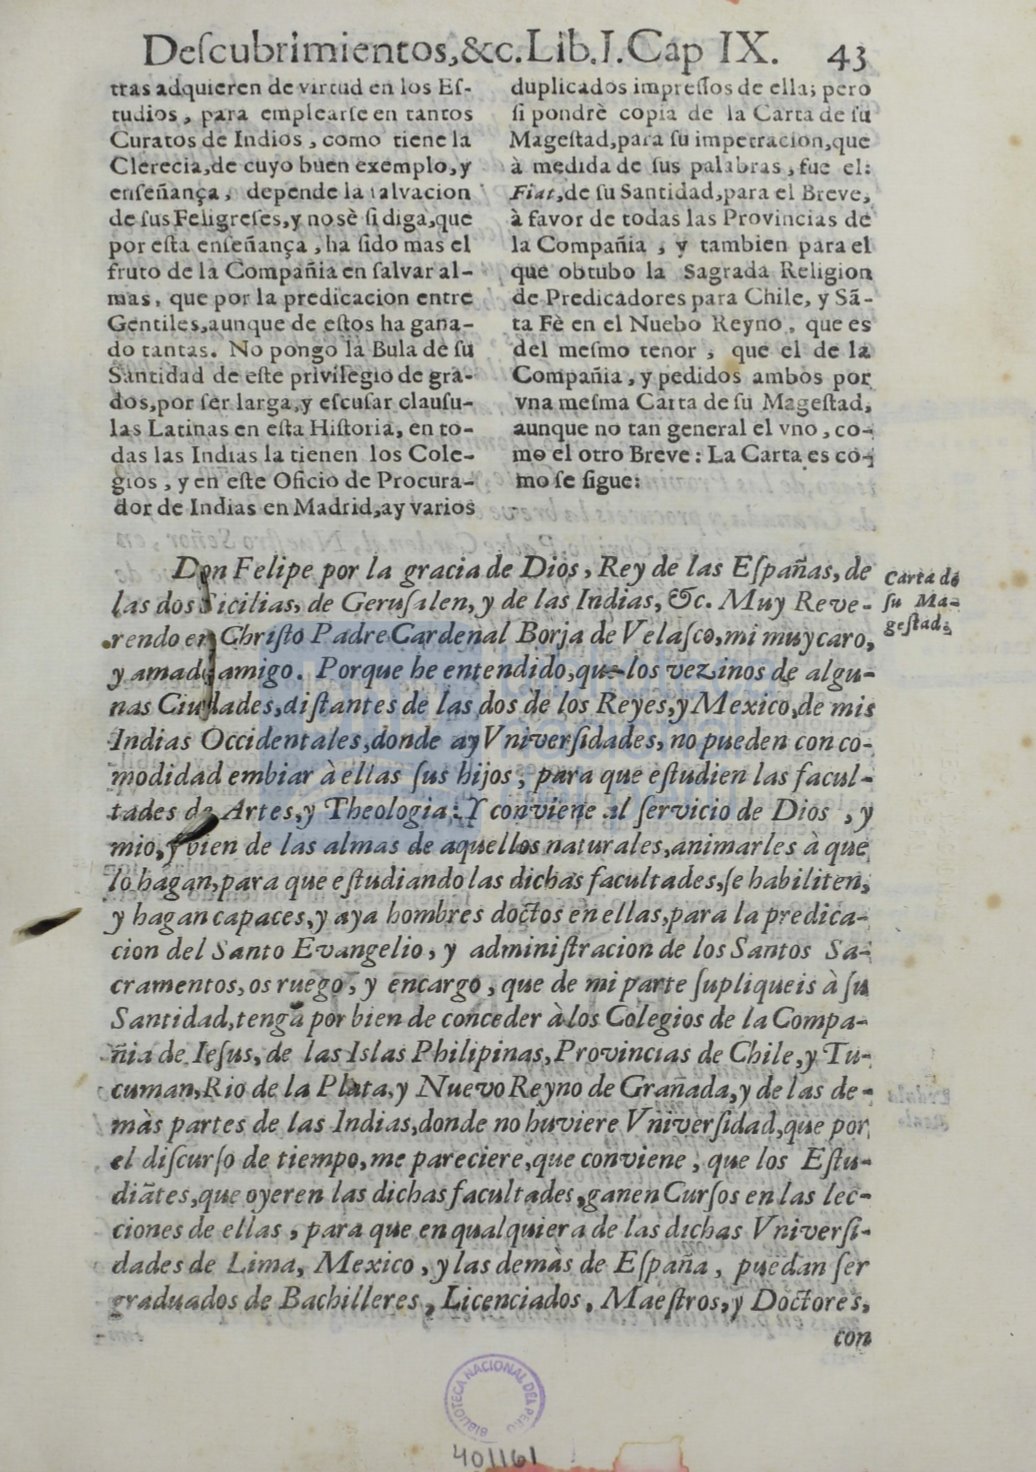 Deſcubrimientos,&c.Lib.I.Cap IX. 43
tras adquieren de virtud en los Eſ-
tudios, para emplearſe en tantos
Curatos de Indios, como tiene la
Clerecia,de cuyo buen exemplo,y
enſeñança, depende la ſalvacion
de ſus Feligreſes,y no sè ſi diga,que
por eſta enſeñança, ha ſido mas el
fruto de la Compañia en ſalvar al-
mas, que por la predicacion entre
Gentiles,aunque de eſtos ha gana-
do tantas. No pongo la Bula de ſu
Santidad de eſte privilegio de gra-
dos,por ſer larga,y eſcuſar clauſu-
las Latinas en eſta Hiſtoria, en to-
das las Indias la tienen los Cole-
gios, y en eſte Oficio de Procura-
dor de Indias en Madrid,ay varios
duplicados impreſſos de ella; pero
ſi pondrè copia de la Carta de ſu
Mageſtad,para ſu impetracion,que
à medida de ſus palabras, fue el:
Fiat,de ſu Santidad,para el Breve,
à favor de todas las Provincias de
la Compañia, y tambien para el
que obtubo la Sagrada Religion
de Predicadores para Chile, y Sã-
ta Fè en el Nuebo Reyno, que es
del meſmo tenor, que el de la
Compañia, y pedidos ambos por
vna meſma Carta de ſu Mageſtad,
aunque no tan general el vno, co-
mo el otro Breve: La Carta es co-
mo ſe ſigue:
Don Felipe por la gracia de Dios, Rey de las Eſpañas, de
las dos Sicilias, de Geruſalen, y de las Indias, &c. Muy Reve-
rendo en Chriſto Padre Cardenal Borja de Velaſco,mi muy caro,
y amado amigo. Porque he entendido,que los vezinos de algu-
nas Ciudades,diſtantes de las dos de los Reyes,y Mexico,de mis
Indias Occidentales,donde ay Vniverſidades, no pueden con co-
modidad embiar à ellas ſus hijos, para que eſtudien las facul-
tades de Artes,y Theologia: Y conviene al ſervicio de Dios, y
mio,y bien de las almas de aquellos naturales,animarles à que
lo hagan,para que eſtudiando las dichas facultades,ſe habiliten,
y hagan capaces,y aya hombres doctos en ellas,para la predica-
cion del Santo Evangelio, y adminiſtracion de los Santos Sa-
cramentos, os ruego, y encargo, que de mi parte ſupliqueis à ſu
Santidad,tenga por bien de conceder à los Colegios de la Compa-
ñia de Ieſus, de las Islas Philipinas,Provincias de Chile,y Tu-
cuman,Rio de la Plata,y Nuevo Reyno de Grañada,y de las de-
màs partes de las Indias,donde no huviere Vniverſidad,que por
el diſcurſo de tiempo,me pareciere,que conviene, que los Eſtu-
diãtes,que oyeren las dichas facultades,ganen Curſos en las lec-
ciones de ellas, para que en qualquiera de las dichas Vniverſi-
dades de Lima, Mexico, y las demàs de Eſpaña, puedan ſer
graduados de Bachilleres, Licenciados, Maeſtros,y Doctores,
con
Carta de
ſu Ma-
geſtad.
BIBLIOTECA NACIONAL DEL PERÚ
401161